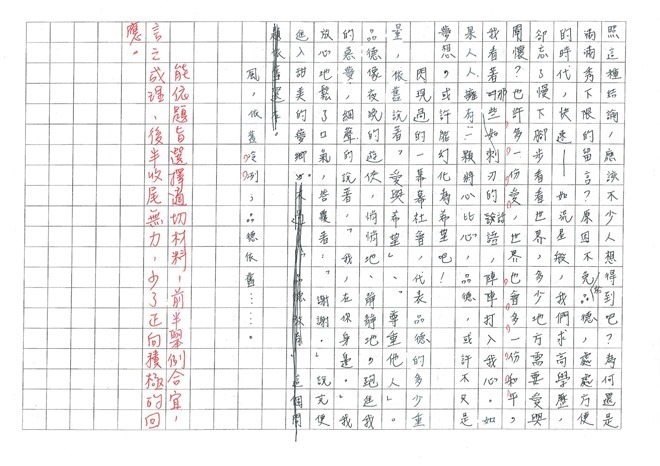 照這種下結論，應該不少人想得到吧？為何還是
兩兩秀下限的留言？原因不免係品德，處處方便
的時代，快速——如
卻忘了慢下腳步看看世界，多少地方需要愛與
關懷？也許多一份愛，世界也會多一份和平。
我看著那些如刺刃的話語，陣陣打入我心。如
果人人擁有一顆將心比心，品德，或許不只是
夢想，或許能幻化為希望吧！
閃現過的一幕幕社會，代表品德的多少重
量，依舊說著「愛與希望」、「尊重他人」。
品德像夜晚的遊俠，悄悄地、靜靜地，跑進我
的惡夢，細聲的說著，「我在你身邊。」我
放心地鬆了口氣，著：「謝謝。」說完便
進入甜美的夢鄉。
風，依舊凜冽；品德依舊……
能依題旨選擇適切材料，前半舉例合宜，
言之成理，後半收尾無力，少了正向積極的回
應。